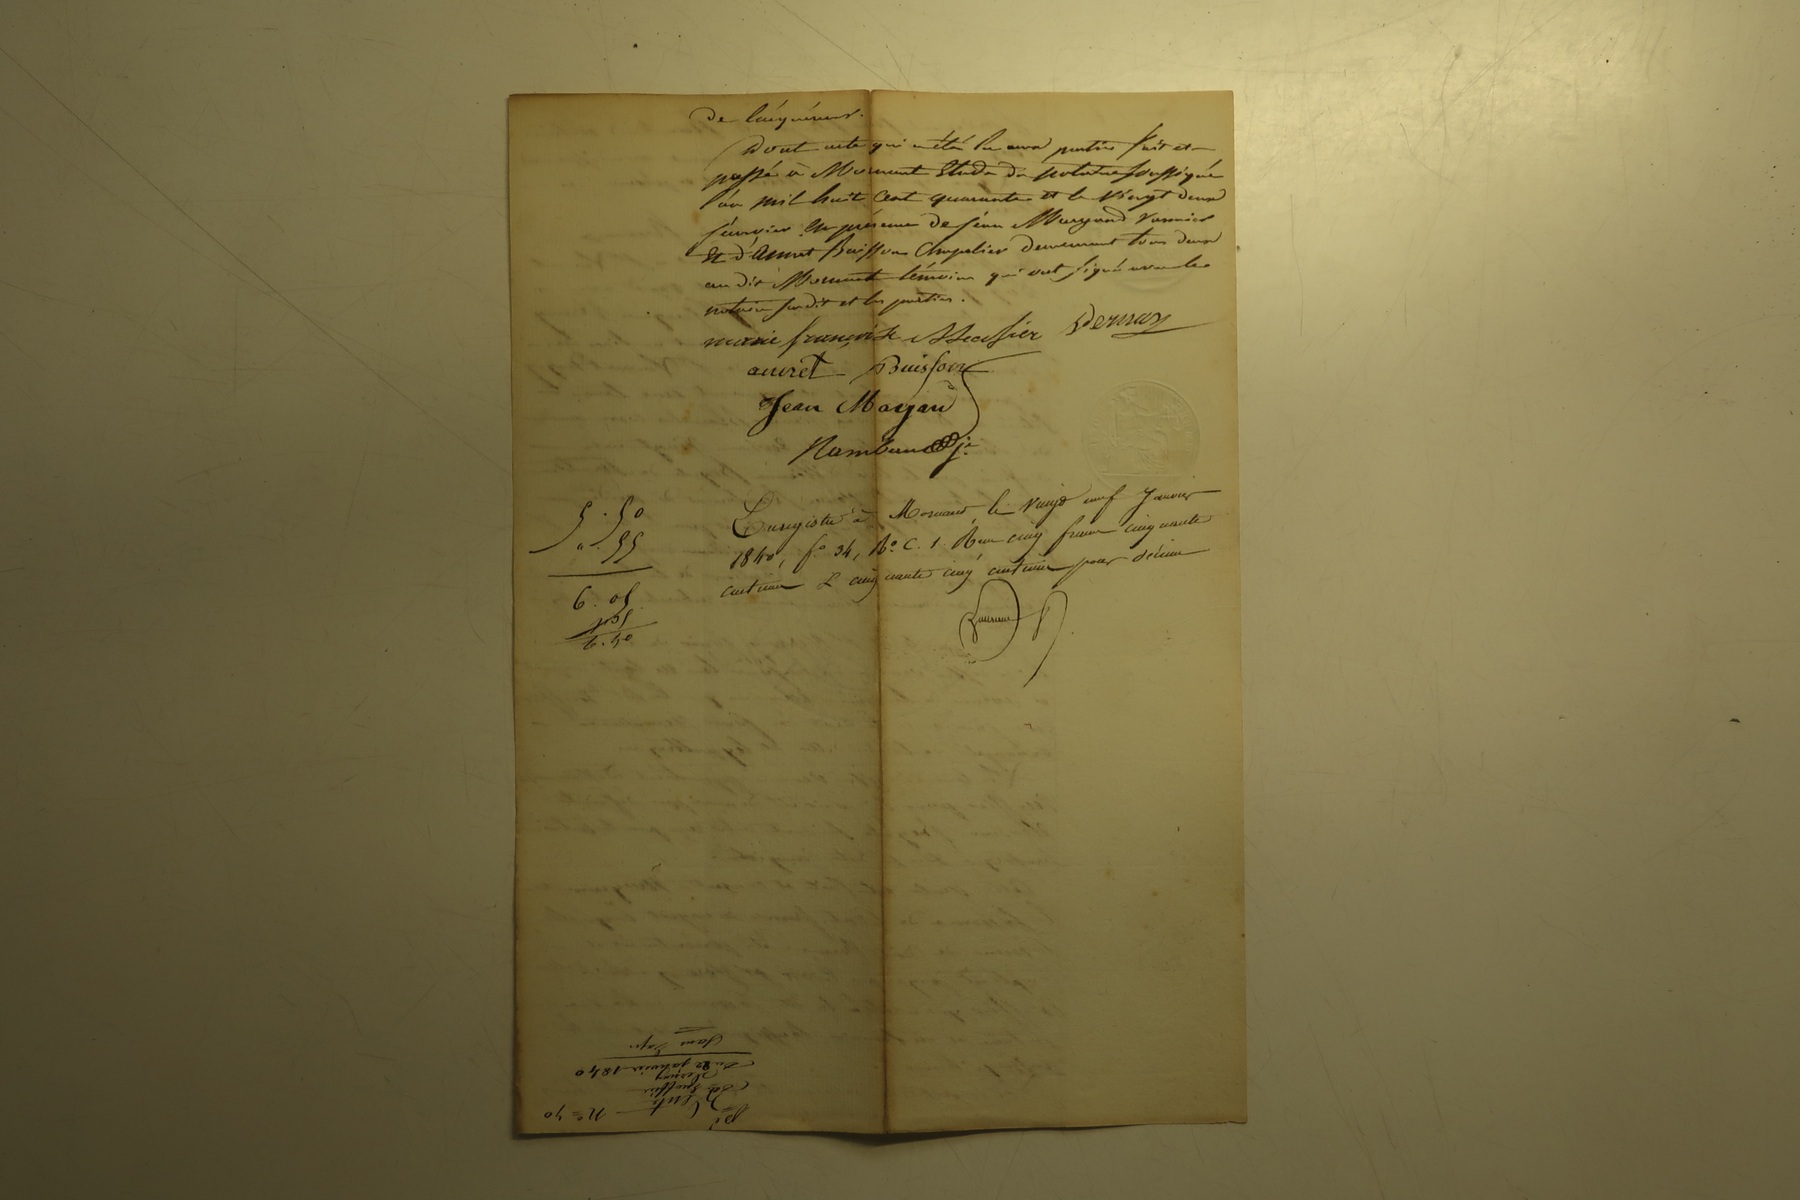 de l'acquéreur.
Dont acte qui a été lu aux parties fait et
passé à Mornant Etude du notaire soussigné
l'an mil huit cent quarante et le vingt deux
janvier En présence de Jean Marjard
Et d'Annet Buisson demeurant tous deux
au dit Mornant témoins qui ont signé avec le
notaire susdit et les parties.
marie françoise Vernay
annet Buisson
Jean Marjard
5. 50
". 55
6. 05
Enregistré à Mornant, le vingt neuf Janvier
1840, f° 34, R° C. 1. Reçu cinq francs cinquante
centimes & cinquante cinq centimes pour décime
6. 40
Vente n° 40
Vernay
Du 22 janvier 1840